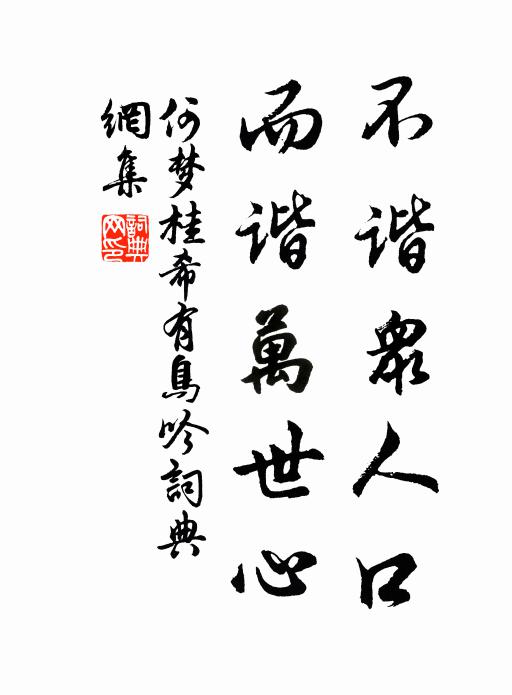 不谐眾人口
而谐萬世心
何梦桂希有鳥吟詞典
網集
詞典
网印